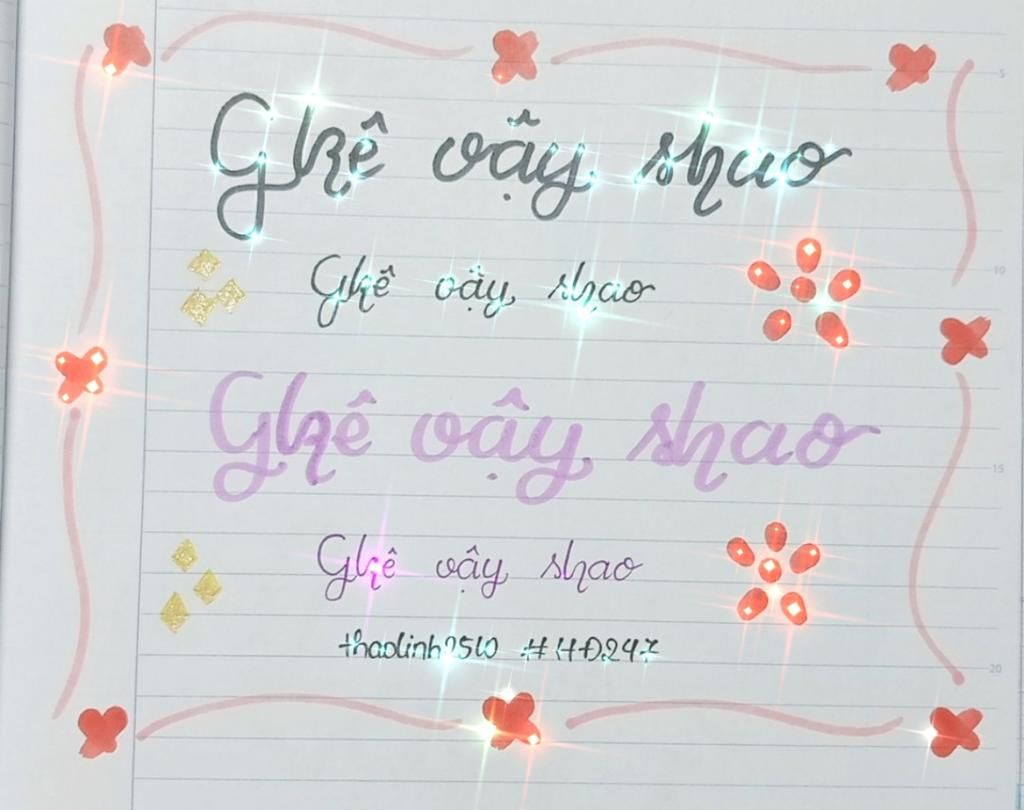 Ghê vậy shao
Ghê vậy shao
Ghê vậy shao
Ghê vậy shao
thaolinh2510 #HĐ247
5
10
15
20